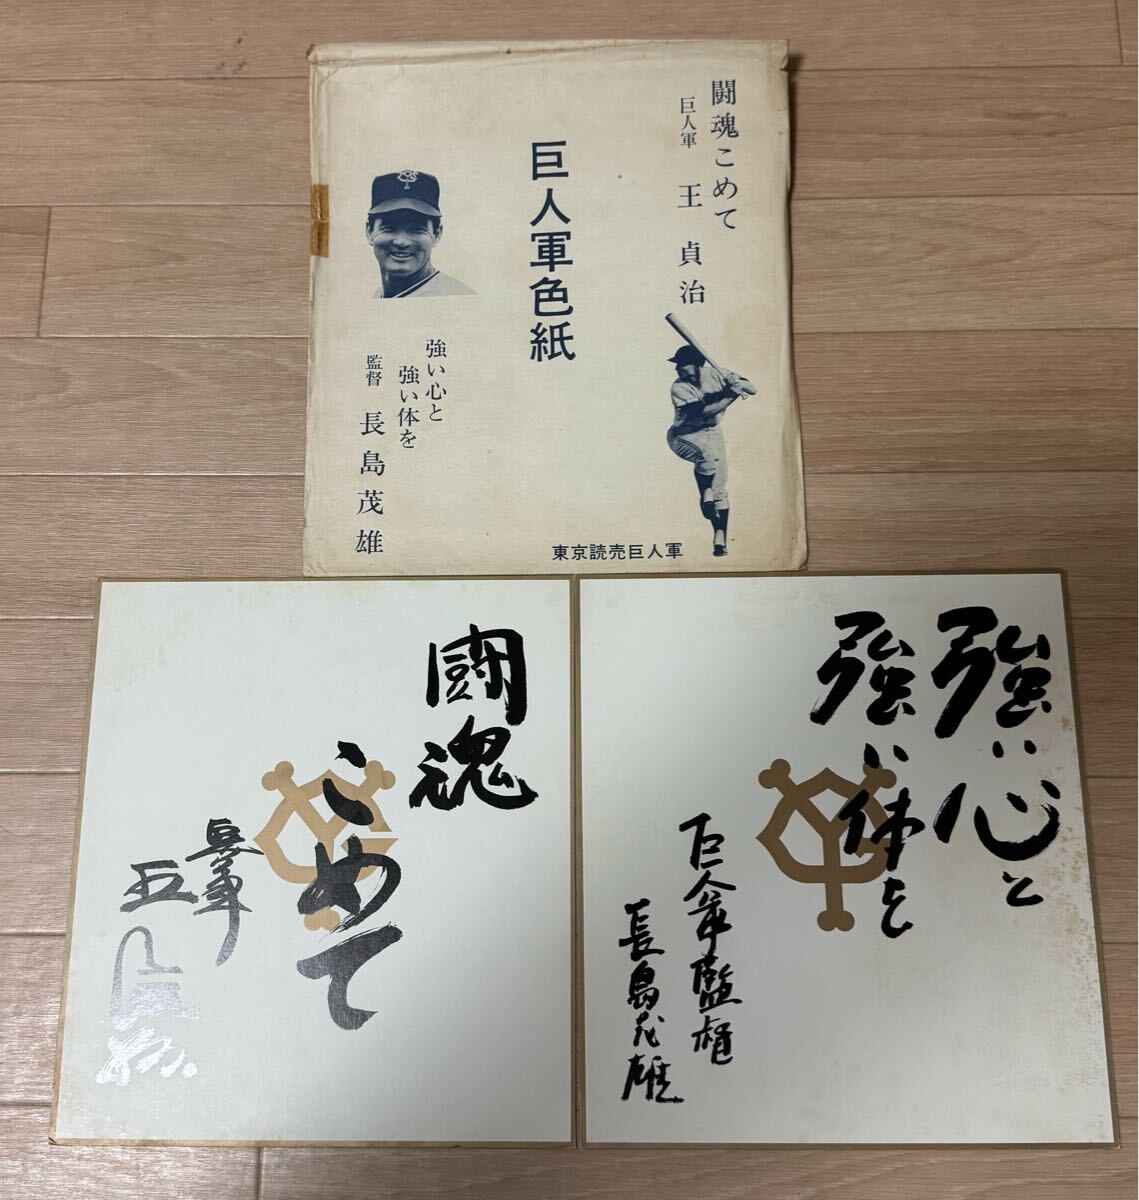 闘魂こめて
巨人軍 王貞治
巨人軍色紙
強い心と
強い体を
監督 長島茂雄
東京読売巨人軍
闘魂
こめて
巨人軍
王貞治
強い心と
強い体を
巨人軍監督
長島茂雄